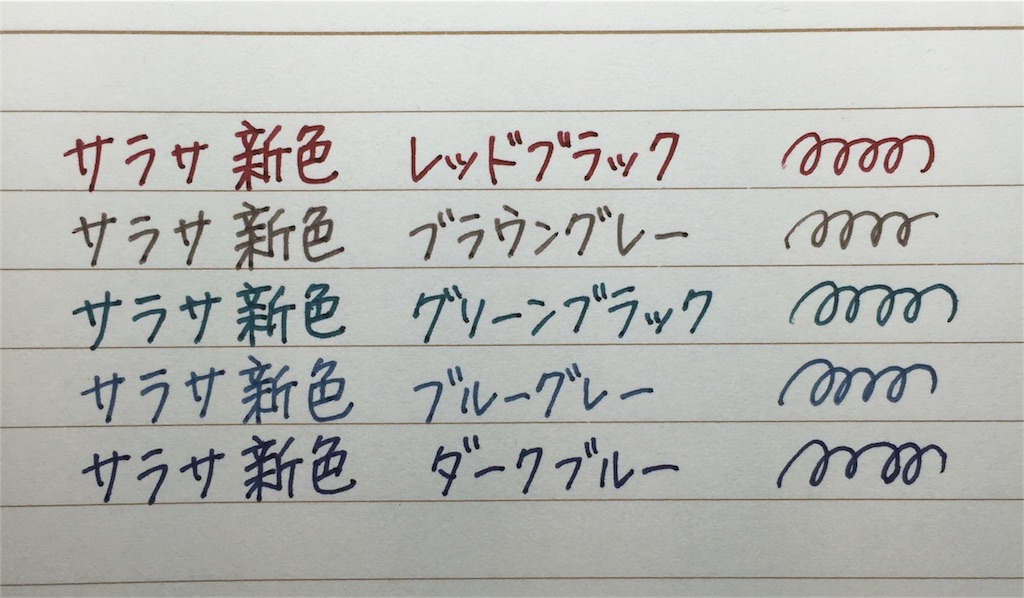 サラサ 新色 レッドブラック
サラサ 新色 ブラウングレー
サラサ 新色 グリーンブラック
サラサ 新色 ブルーグレー
サラサ 新色 ダークブルー